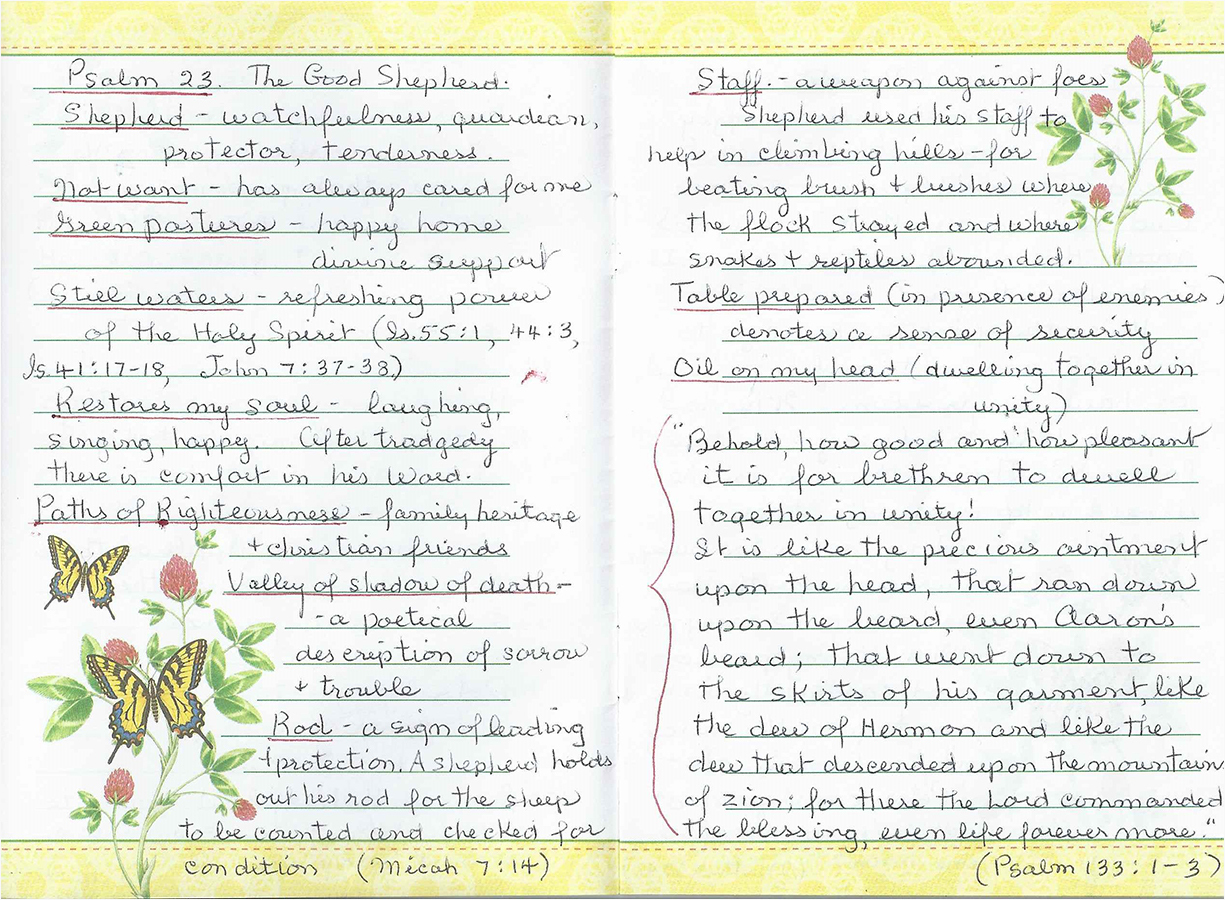 Psalm 23. The Good Shepherd.
Shepherd - watchfulness, guardian,
protector, tenderness.
Not want - has always cared for me
Green pastures - happy home
divine support
Still waters - refreshing power
of the Holy Spirit (Is. 55:1, 44:3,
Is. 41:17-18, John 7:37-38)
Restores my soul - laughing,
singing, happy. After tradgedy
there is comfort in his Word.
Paths of Righteousness - family heritage
+ christian friends
Valley of shadow of death -
- a poetical
description of sorrow
+ trouble
Rod - a sign of leading
+ protection. A shepherd holds
out his rod for the sheep
to be counted and checked for
condition (Micah 7:14)
Staff. - a weapon against foes
Shepherd used his staff to
help in climbing hills - for
beating brush + bushes where
the flock strayed and where
snakes + reptiles abounded.
Table prepared (in presence of enemies)
denotes a sense of security
Oil on my head (dwelling together in
unity)
"Behold, how good and how pleasant
it is for brethren to dwell
together in unity!
It is like the precious ointment
upon the head, that ran down
upon the beard, even Aaron's
beard; that went down to
the skirts of his garment, like
the dew of Hermon and like the
dew that descended upon the mountain
of Zion; for there the Lord commanded
the blessing, even life forever more."
(Psalm 133:1-3)